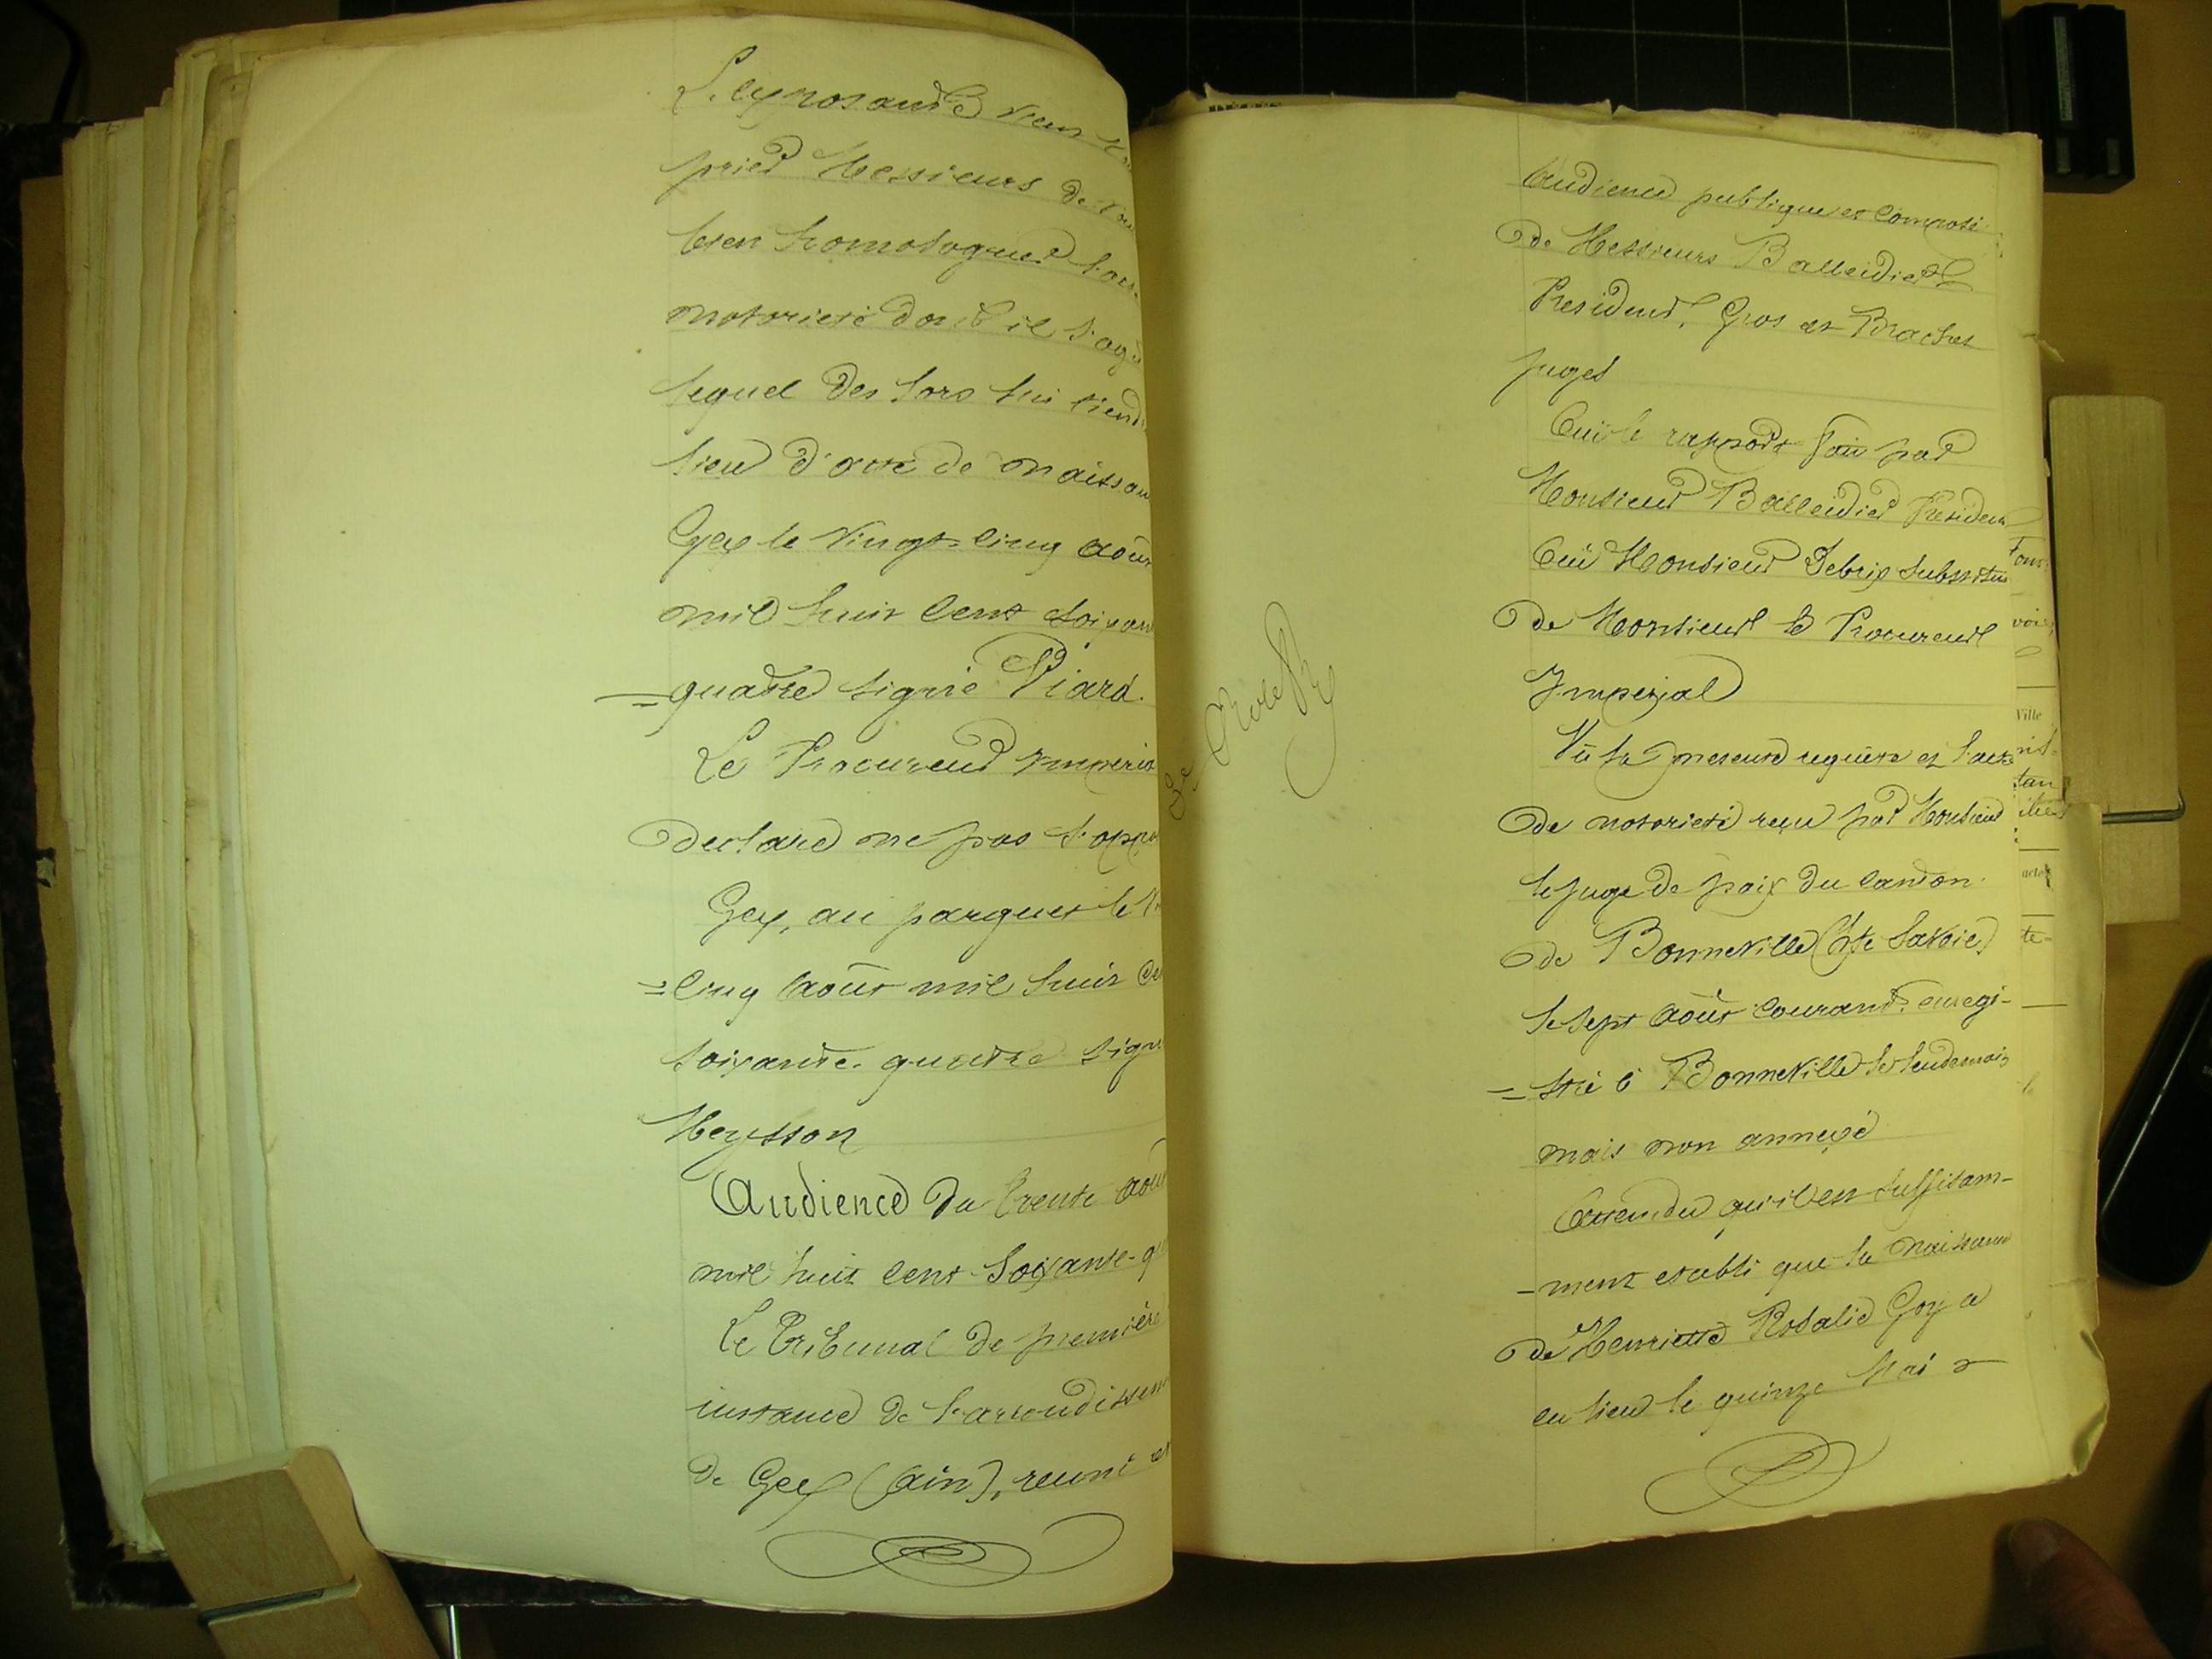 L'exposante vien
prier Messieurs de
bien homologuer l'ac
notorieté dont il s'agi
lequel des lors lui tiend
lieu d'acte de naissan
Gex le Vingt-cinq août
mil huit cent soixan
=quatre signé Piard.
Le Procureur Imperia
declare ne pas s'oppo
Gex, au parquet le V
=cinq août mil huit ce
soixante-quatre sign
Meysson
Audience du trente aou
mil huit cent soixante-q
Le Tribunal de première
instance de l'arrondissem
de Gex (ain), reuni en
2e Role
audience publique et composé
de Messieurs Balleidier
President, Gros et Brachet
juges
Ouï le rapport fait par
Monsieur Balleidier President
Ouï Monsieur Debrix substitu
de Monsieur le Procureur
Imperial
Vu la presente requête et l'acte
de notorieté reçu par Monsieur
le juge de paix du canton
de Bonneville (Hte Savoie)
le sept août courant, enregi-
=stré à Bonneville le lendemain
mais non annexé
Attendu qu'il est suffisam-
-ment etabli que la naissance
de Henriette Rosalie Goy a
eu lieu le quinze Mai
Ville
acte
te-